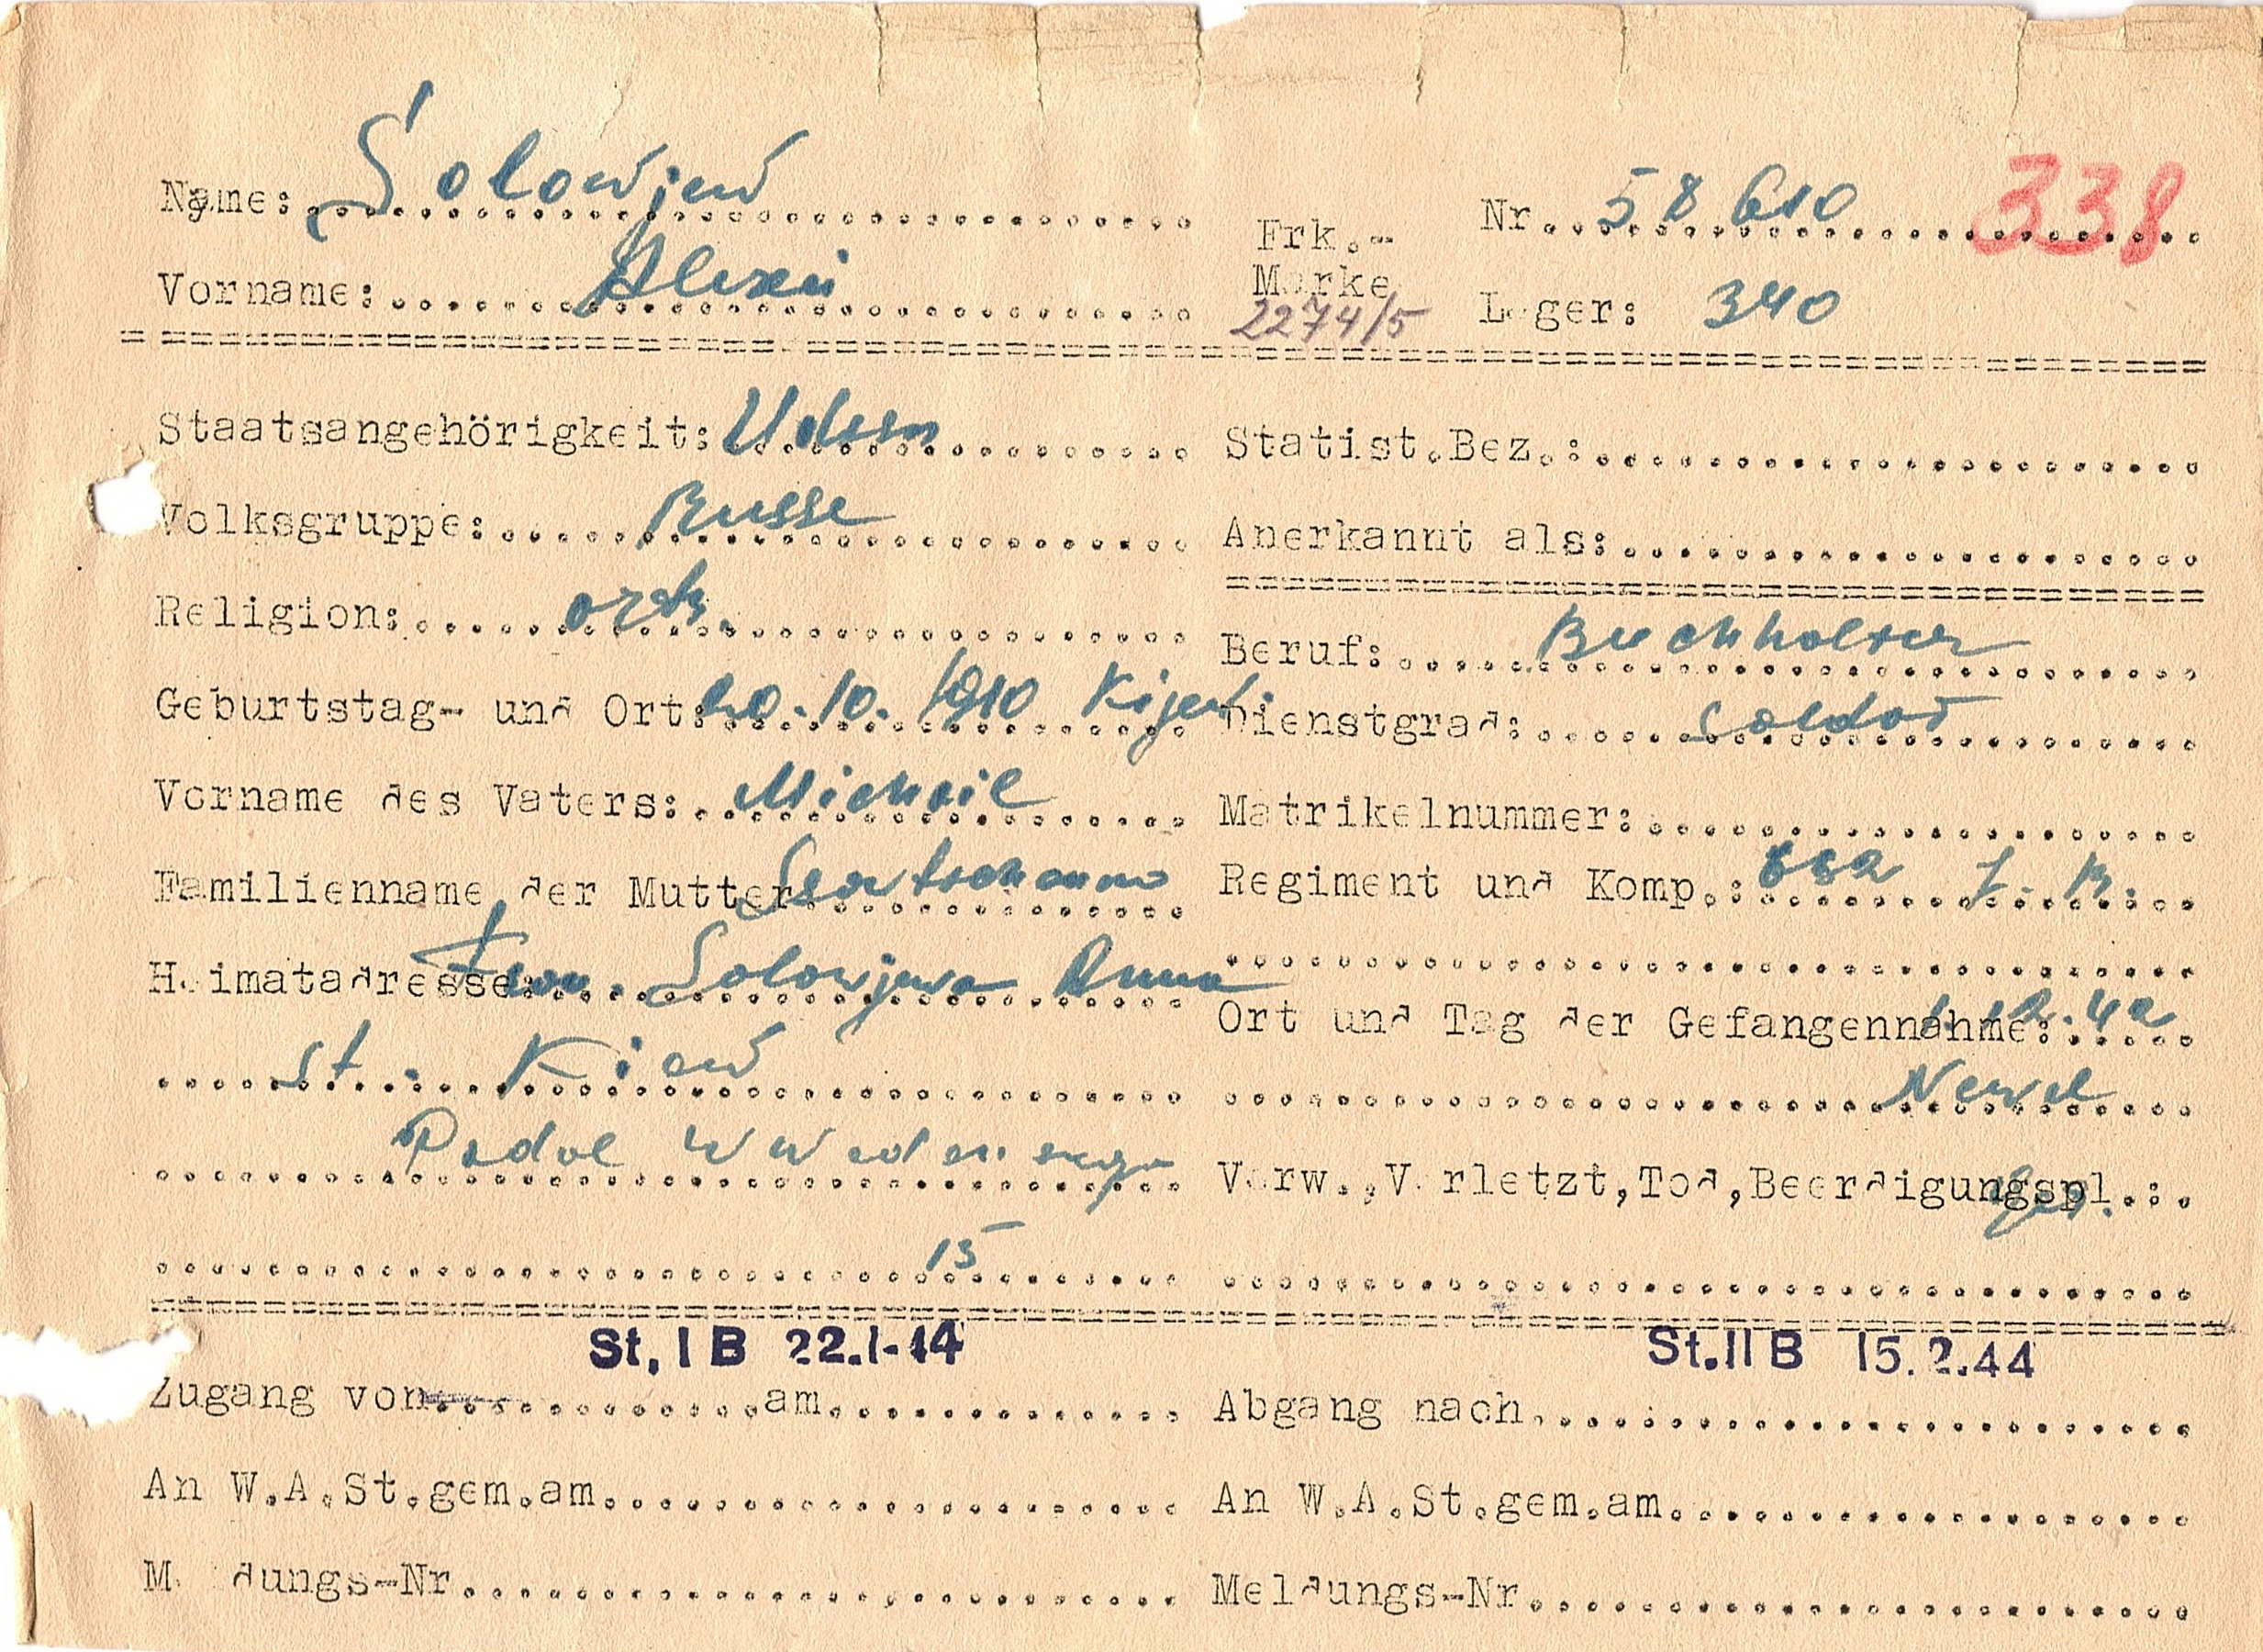 Name: Solowjew
Nr. 58 610
338
Frk.-
Marke
2274/5
Vorname: Alexei
Lager: 340
Staatsangehörigkeit: Udssr
Statist.Bez.:
Volksgruppe: Russe
Anerkannt als:
Religion: orth.
Beruf: Buchhalter
Geburtstag- und Ort: 20.10.1910 Kijew
Dienstgrad: Soldat
Vorname des Vaters: Michail
Matrikelnummer:
Familienname der Mutter
Regiment und Komp.:
Heimatadresse: Frau. Solowjewa Anna
Ort und Tag der Gefangennahme: 12.42
St. Kiew
Newel
Podol
Verw.,Verletzt,Tod,Beerdigungspl.: ges.
15
St. I B 22.1.44
St. II B 15.2.44
Zugang von am
Abgang nach
An W.A.St.gem.am
An W.A.St.gem.am
Meldungs-Nr
Meldungs-Nr